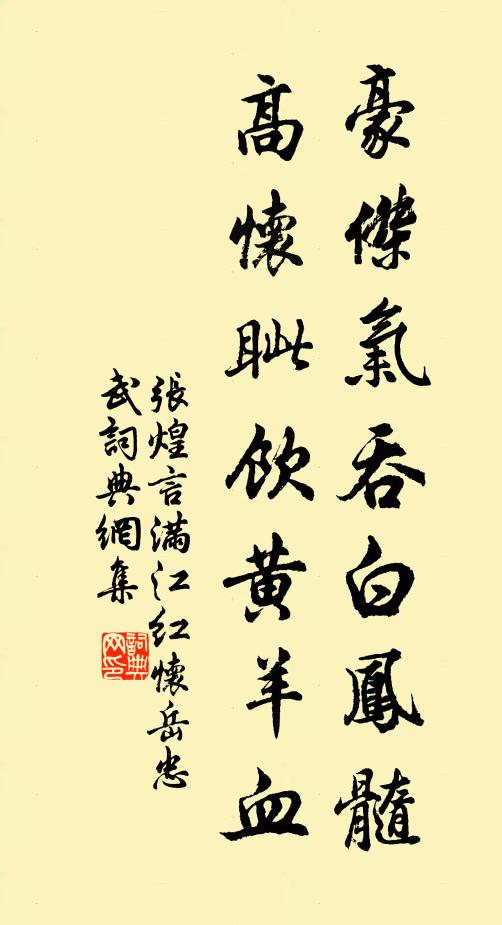 豪傑氣吞白鳳髓
高懷眦飲黃羊血
張煌言滿江紅懷岳忠
武詞典網集
詞典